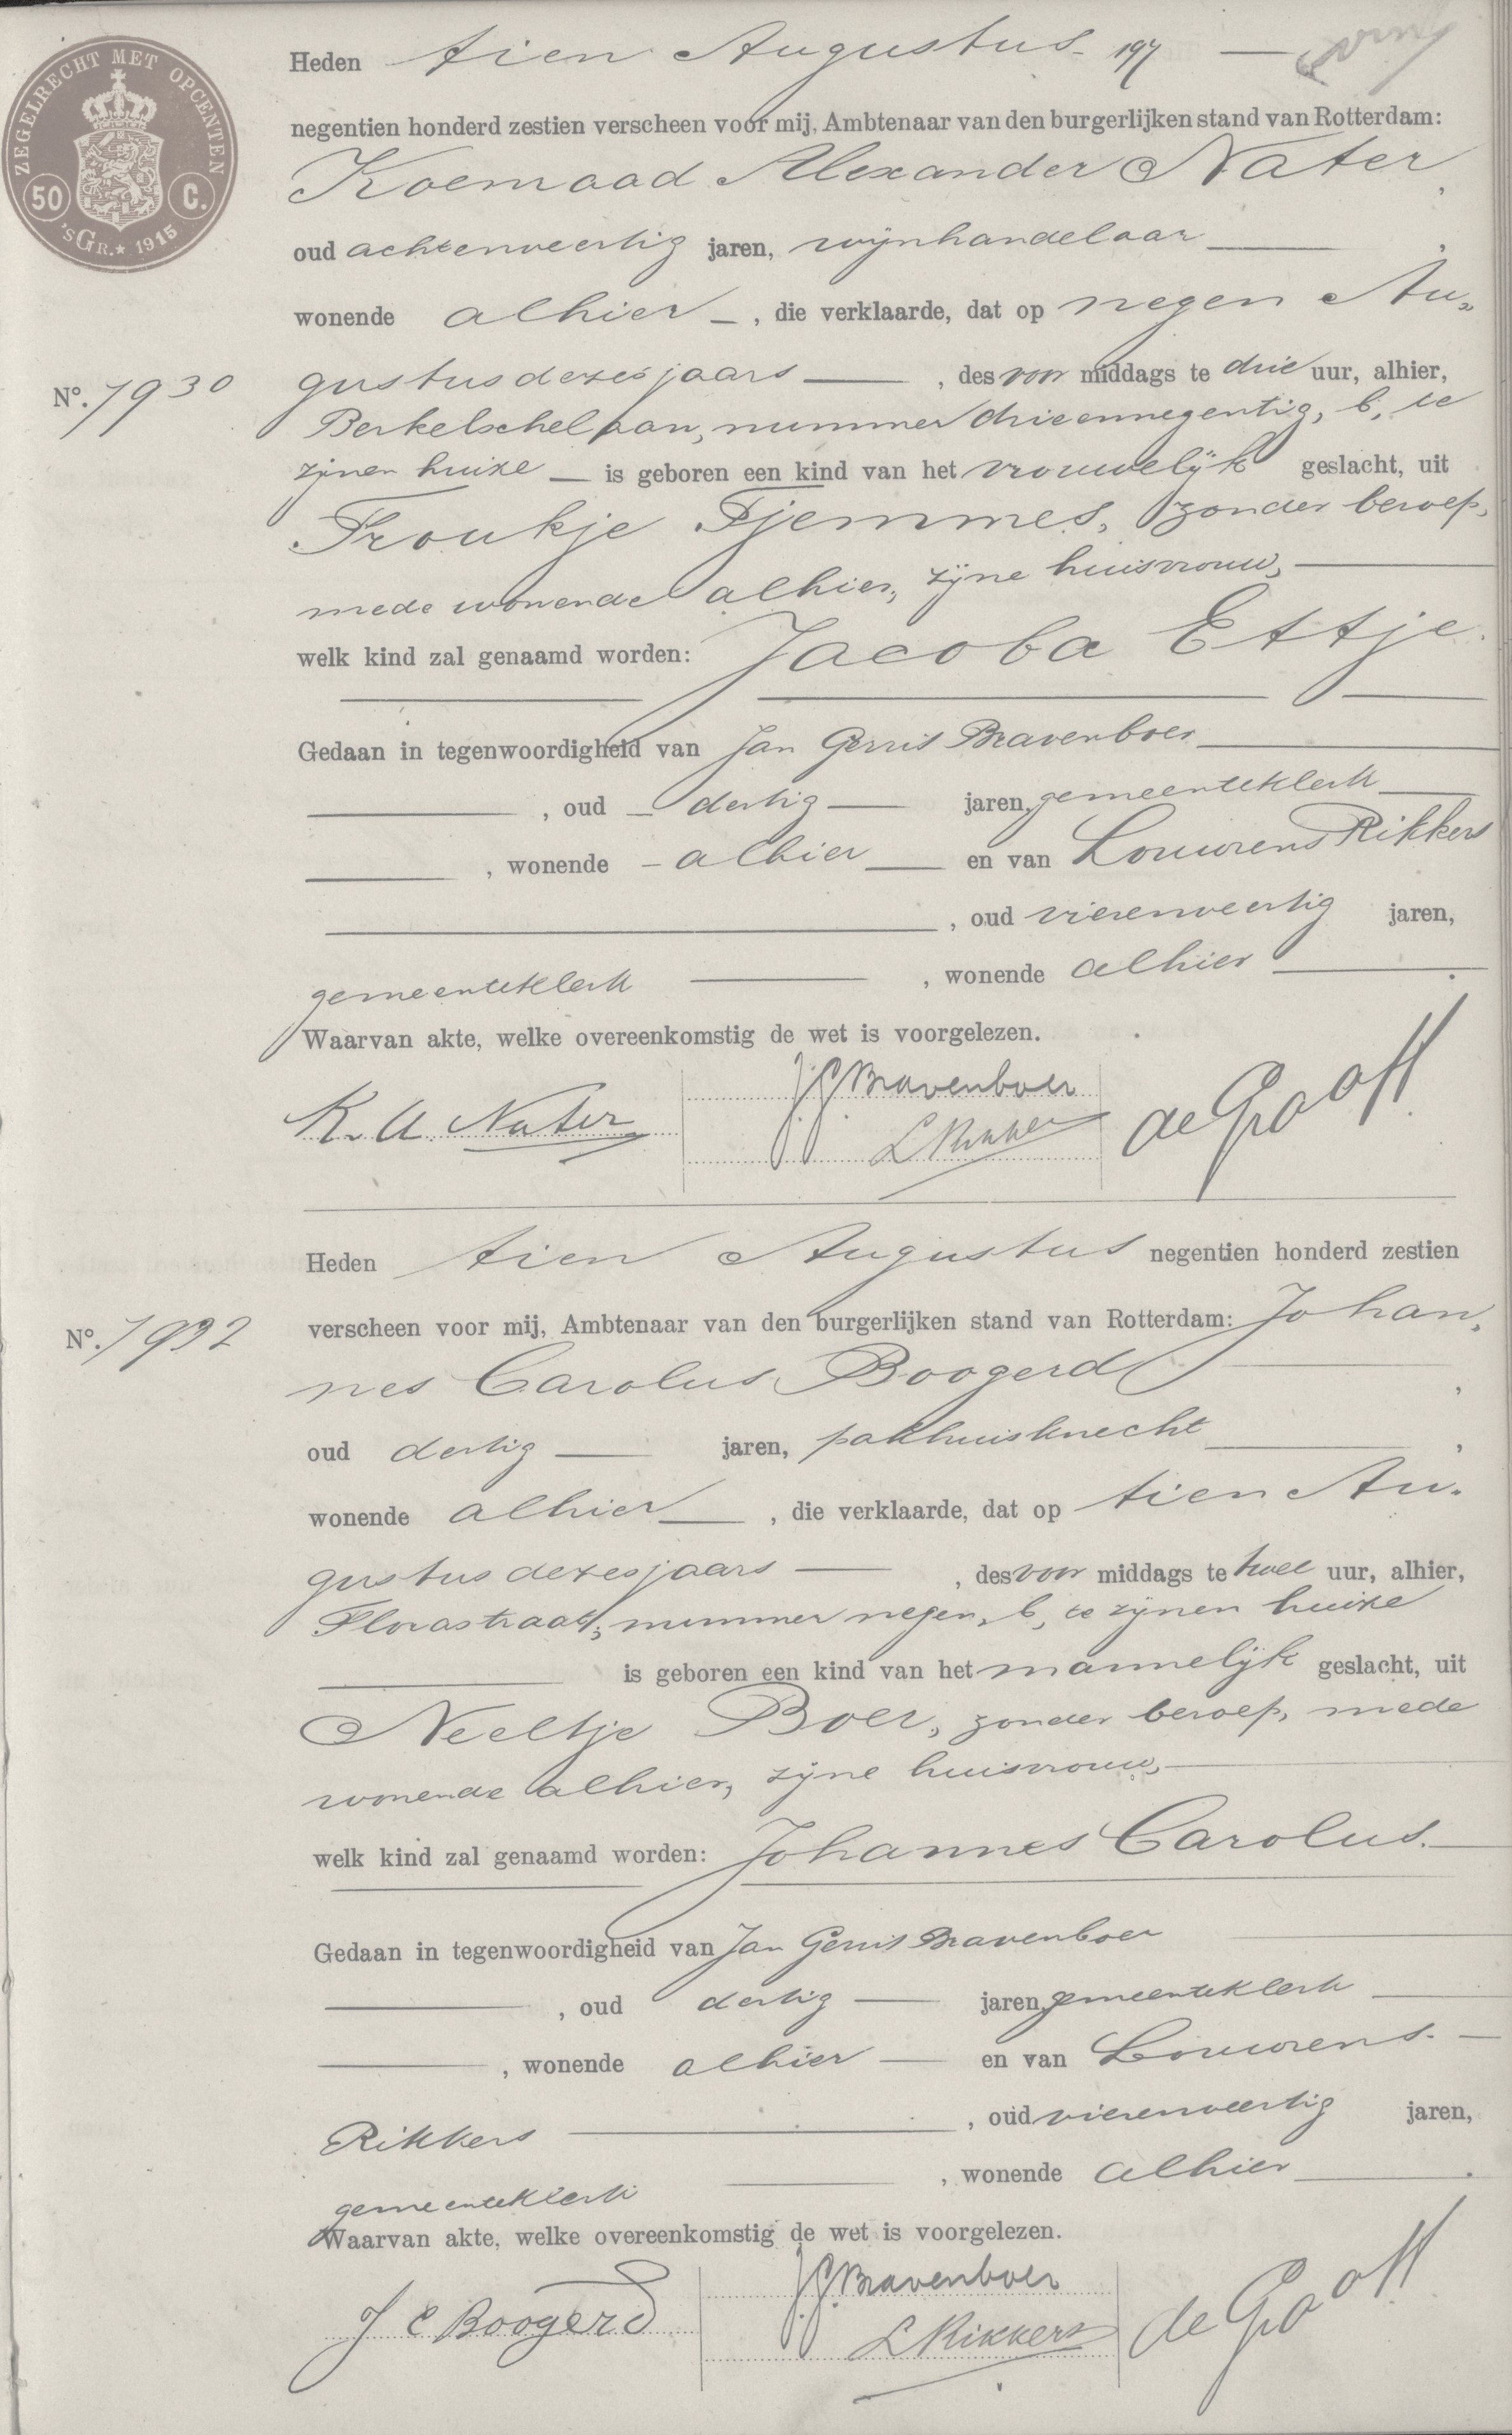 ZEGELRECHT MET OPCENTEN
50 C.
'S GR. ★ 1915
Heden tien Augustus
negentien honderd zestien verscheen voor mij, Ambtenaar van den burgerlijken stand van Rotterdam:
Koenraad Alexander Nater,
oud achtenveertig jaren, wijnhandelaar,
wonende alhier, die verklaarde, dat op negen Au„
No. 7930
gustus dezes jaars, des voor middags te drie uur, alhier,
Berkelschelaan, nummer drieennegentig, b, te
zijnen huize is geboren een kind van het vrouwelijk geslacht, uit
Froukje Tjemmes, zonder beroep,
mede wonende alhier, zijne huisvrouw,
welk kind zal genaamd worden: Jacoba Ettje.
Gedaan in tegenwoordigheid van Jan Gerrit Bravenboer
, oud dertig jaren, gemeenteklerk
, wonende alhier en van Louwrens Rikkers
, oud vierenveertig jaren,
gemeenteklerk, wonende alhier.
Waarvan akte, welke overeenkomstig de wet is voorgelezen.
J.G. Bravenboer
K. A. Nater
L Rikkers
de Graaff
Heden tien Augustus negentien honderd zestien
No. 7932
verscheen voor mij, Ambtenaar van den burgerlijken stand van Rotterdam: Johan„
nes Carolus Boogerd,
oud dertig jaren, pakhuisknecht,
wonende alhier, die verklaarde, dat op tien Au„
gustus dezes jaars, des voor middags te twee uur, alhier,
Florastraat, nummer negen, b, te zijnen huize
is geboren een kind van het mannelijk geslacht, uit
Neeltje Boer, zonder beroep, mede
wonende alhier, zijne huisvrouw,
welk kind zal genaamd worden: Johannes Carolus.
Gedaan in tegenwoordigheid van Jan Gerrit Bravenboer
, oud dertig jaren, gemeenteklerk
, wonende alhier en van Louwrens
Rikkers, oud vierenveertig jaren,
gemeenteklerk, wonende alhier.
Waarvan akte, welke overeenkomstig de wet is voorgelezen.
J.G. Bravenboer
J C Boogerd
L Rikkers
de Graaff